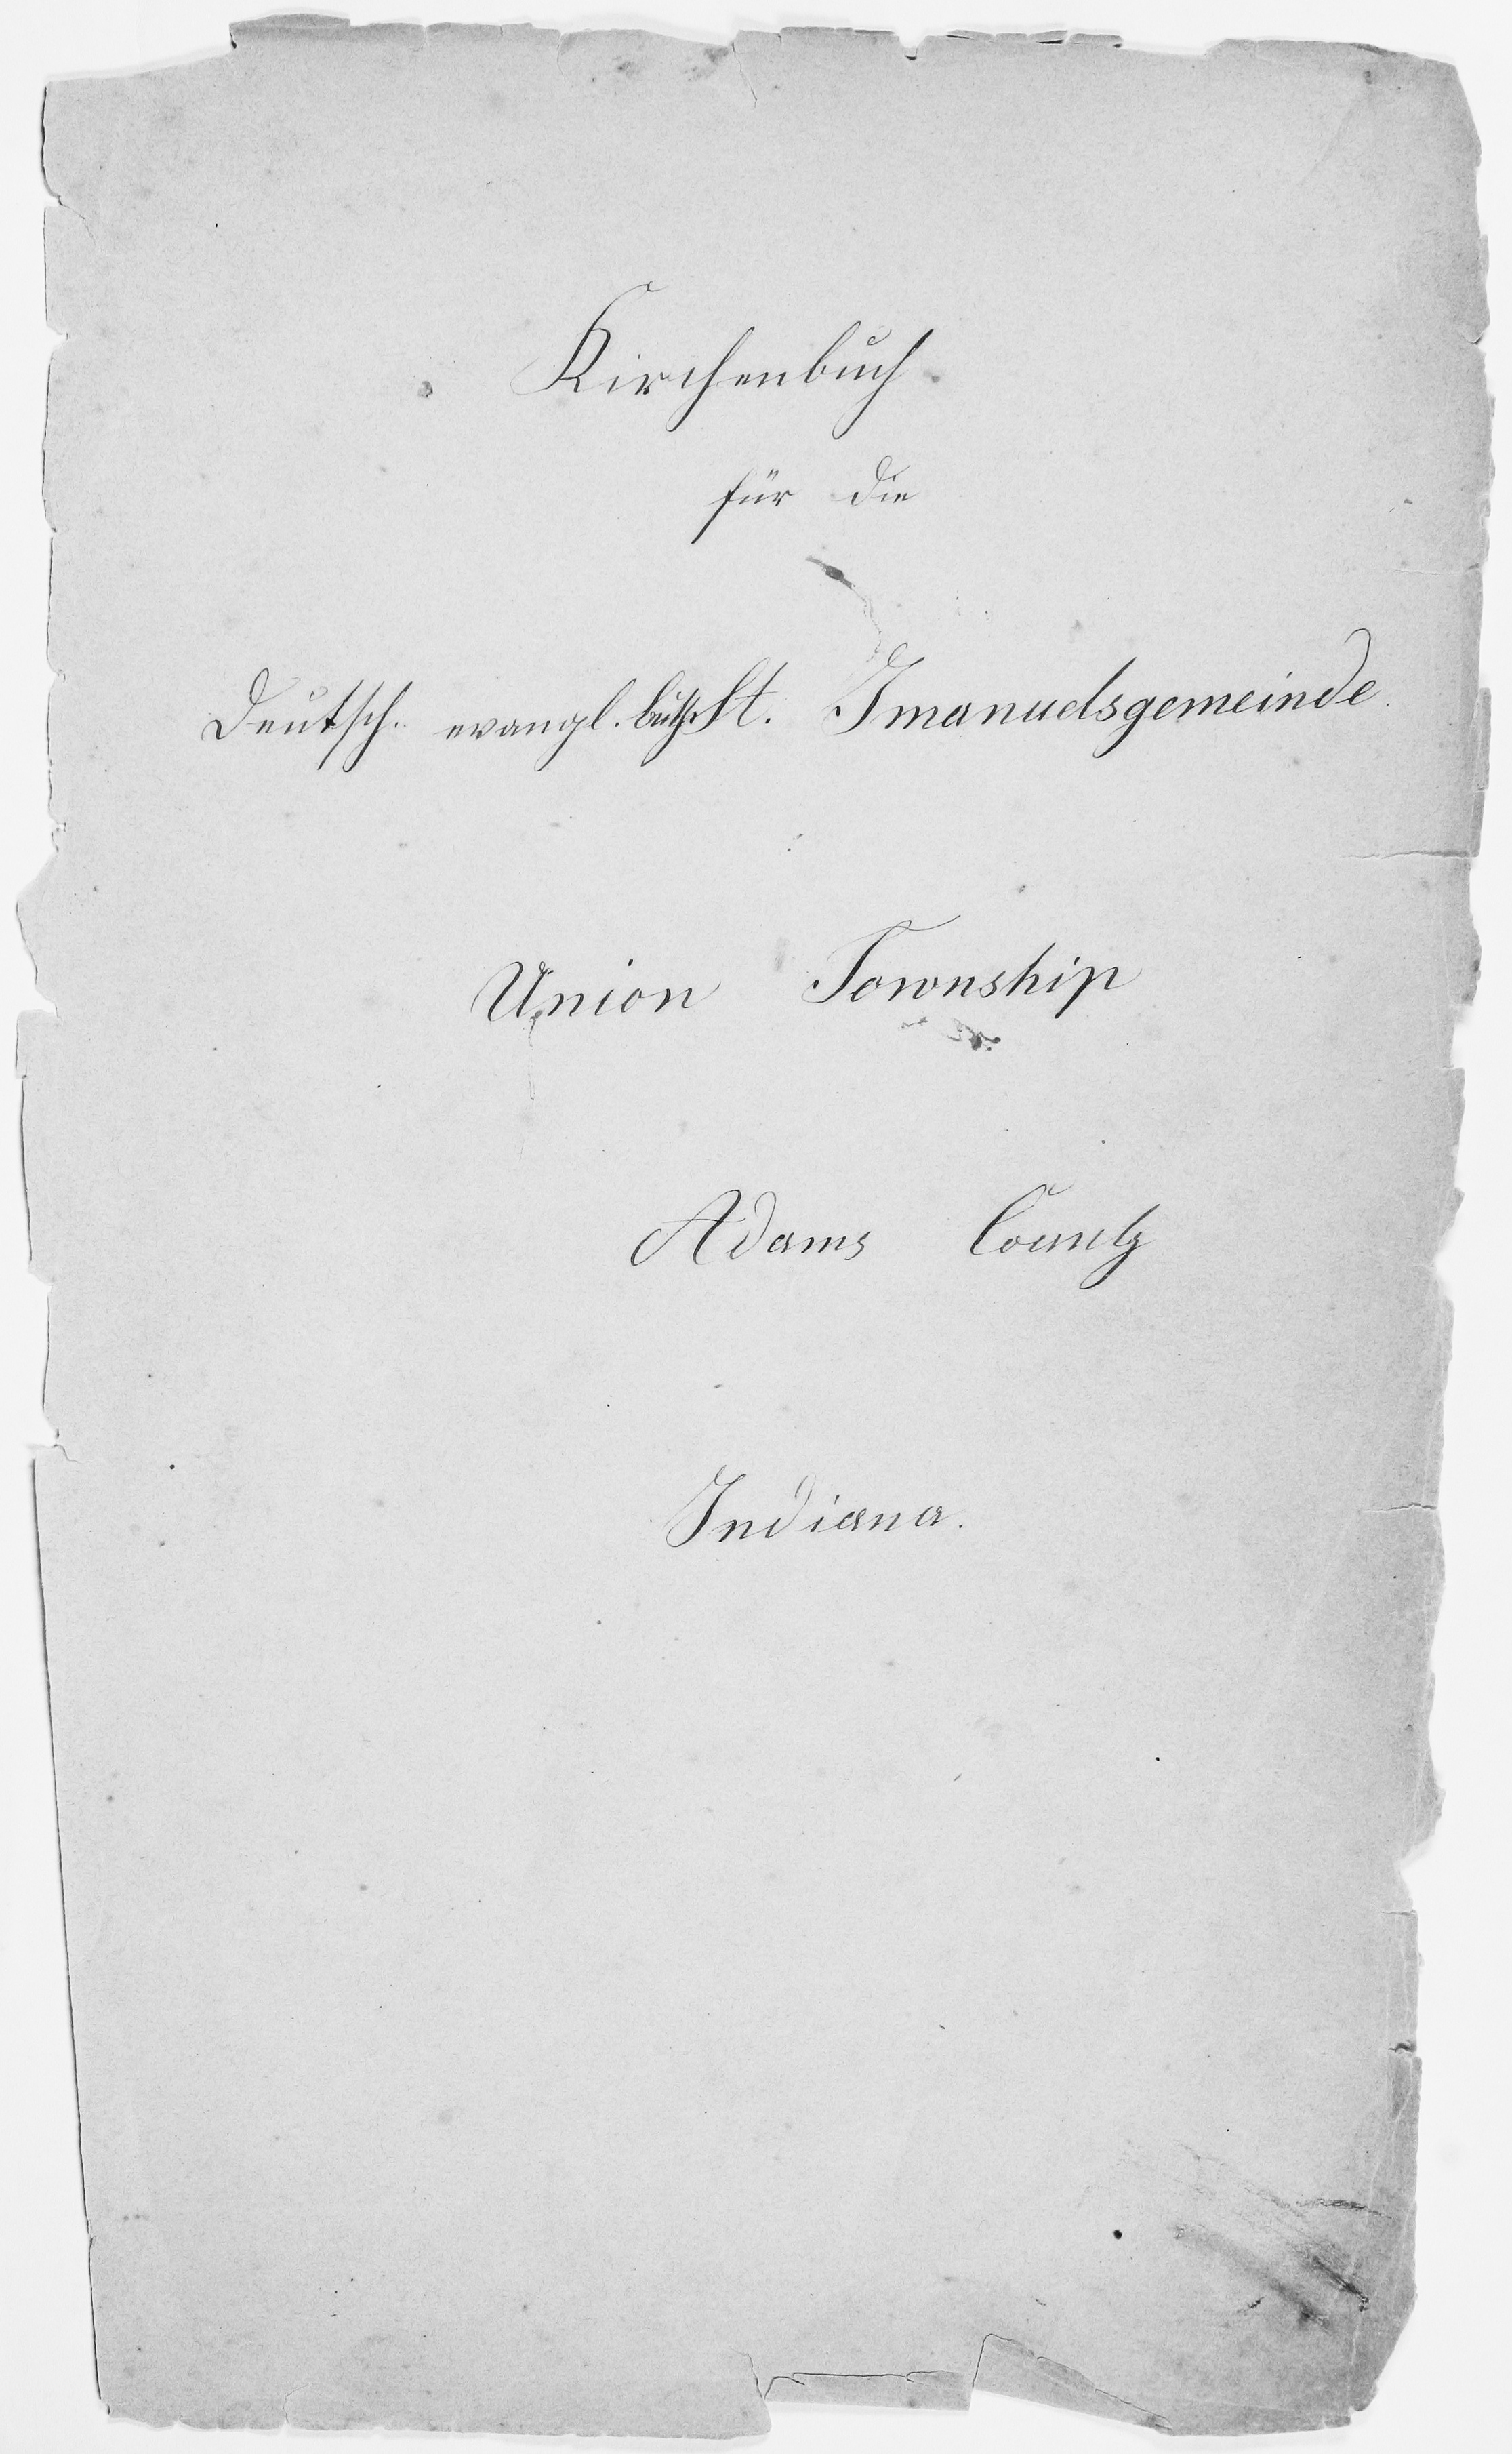 Kirchenbuch
für die
Deutsch. evangl. luth. St. Imanuelsgemeinde.
Union Township
Adams County
Indiana.